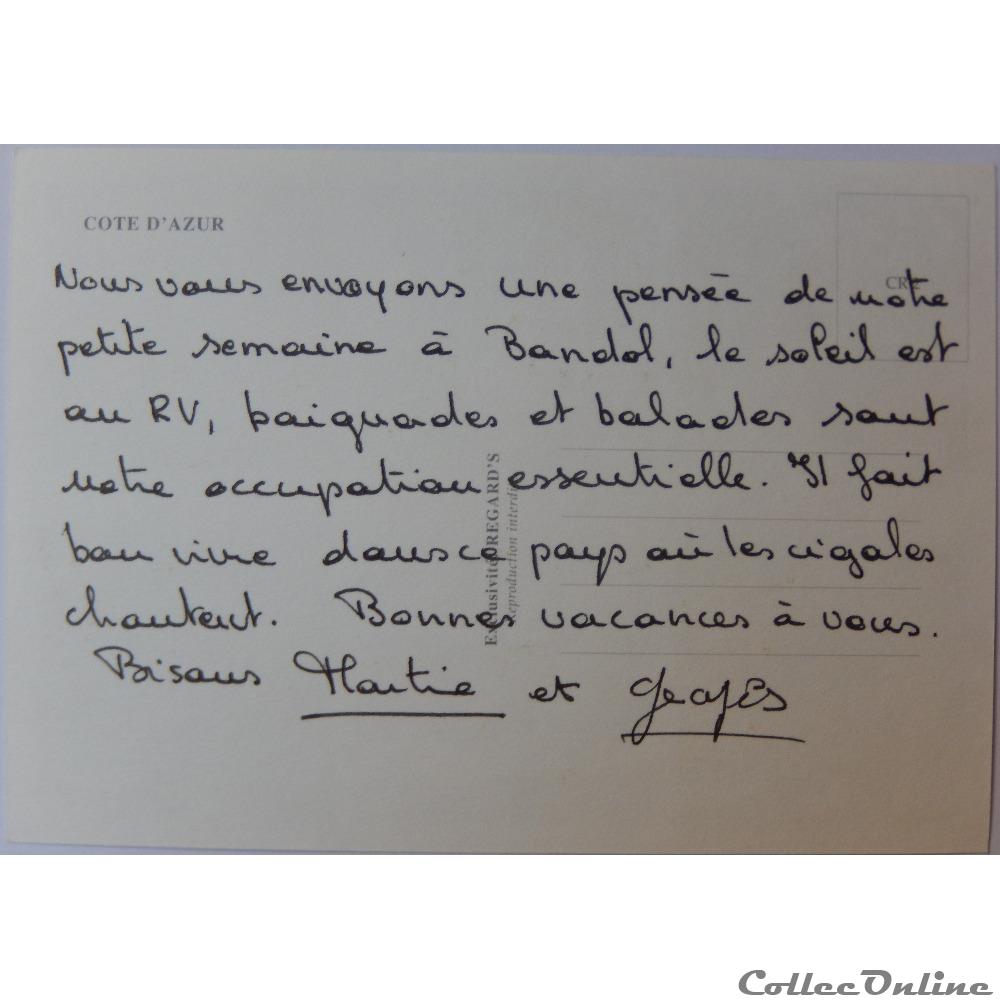 COTE D'AZUR
CR
Nous vous envoyons une pensée de notre
petite semaine à Bandol, le soleil est
au RV, baignades et balades sont
notre occupation essentielle. Il fait
bon vivre dans ce pays où les cigales
chantent. Bonnes vacances à vous.
Bisous et
Exclusivité REGARD'S
Reproduction interdi
CollecOnline